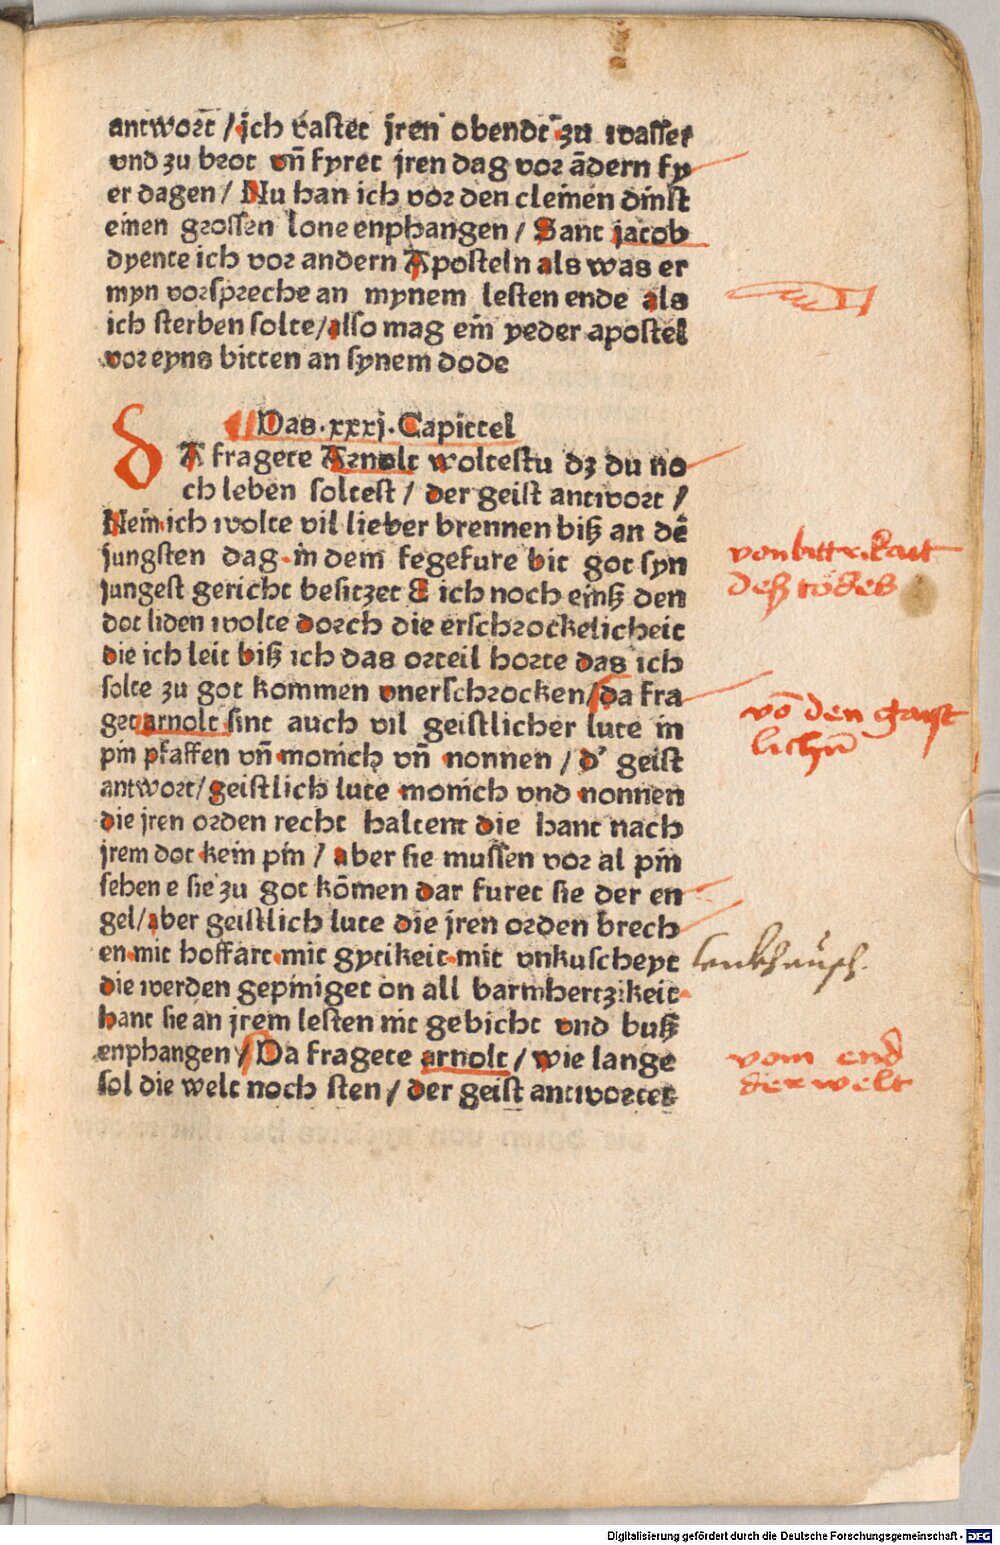 antwort / ich vastet jren obendt zu wasser
vnd zu brot vn̄ fyret jren dag vor ādern fy
er dagen / Nu han ich vor den cleinen dinst
einen grossen lone enphangen / Sant jacob
dyente ich vor andern Aposteln als was er
myn vorspreche an mynem lesten ende als
ich sterben solte / also mag ein yeder apostel
vor eyns bitten an synem dode
Das .xxxj. Capittel
dA fragete Arnolt woltestu dz du no
ch leben soltest / der geist antwort /
Nein ich wolte vil lieber brennen biß an dē
jungsten dag in dem fegefure bit got syn
jungest gericht besitzet E ich noch einß den
dot liden wolte dorch die erschrockelicheit
die ich leit biß ich das orteil horte das ich
solte zu got kommen vnerschrocken / da fra
get arnolt sint auch vil geistlicher lute in
pin pfaffen vn̄ monich vn̄ nonnen / d' geist
antwort / geistlich lute monich vnd nonnen
die jren orden recht haltent die hant nach
jrem dot kein pin / aber sie mussen vor al pin
sehen e sie zu got kōmen dar furet sie der en
gel / aber geistlich lute die jren orden brech
en mit hoffart mit gytikeit mit vnkuscheyt
die werden gepiniget on all barmhertzikeit
hant sie an jrem lesten nit gebicht vnd buß
enphangen / Da fragete arnolt / wie lange
sol die welt noch sten / der geist antwortet
von bitterkait
deß todes
vō den gaist
lichn̄
vom end
der welt
Digitalisierung gefördert durch die Deutsche Forschungsgemeinschaft - DFG